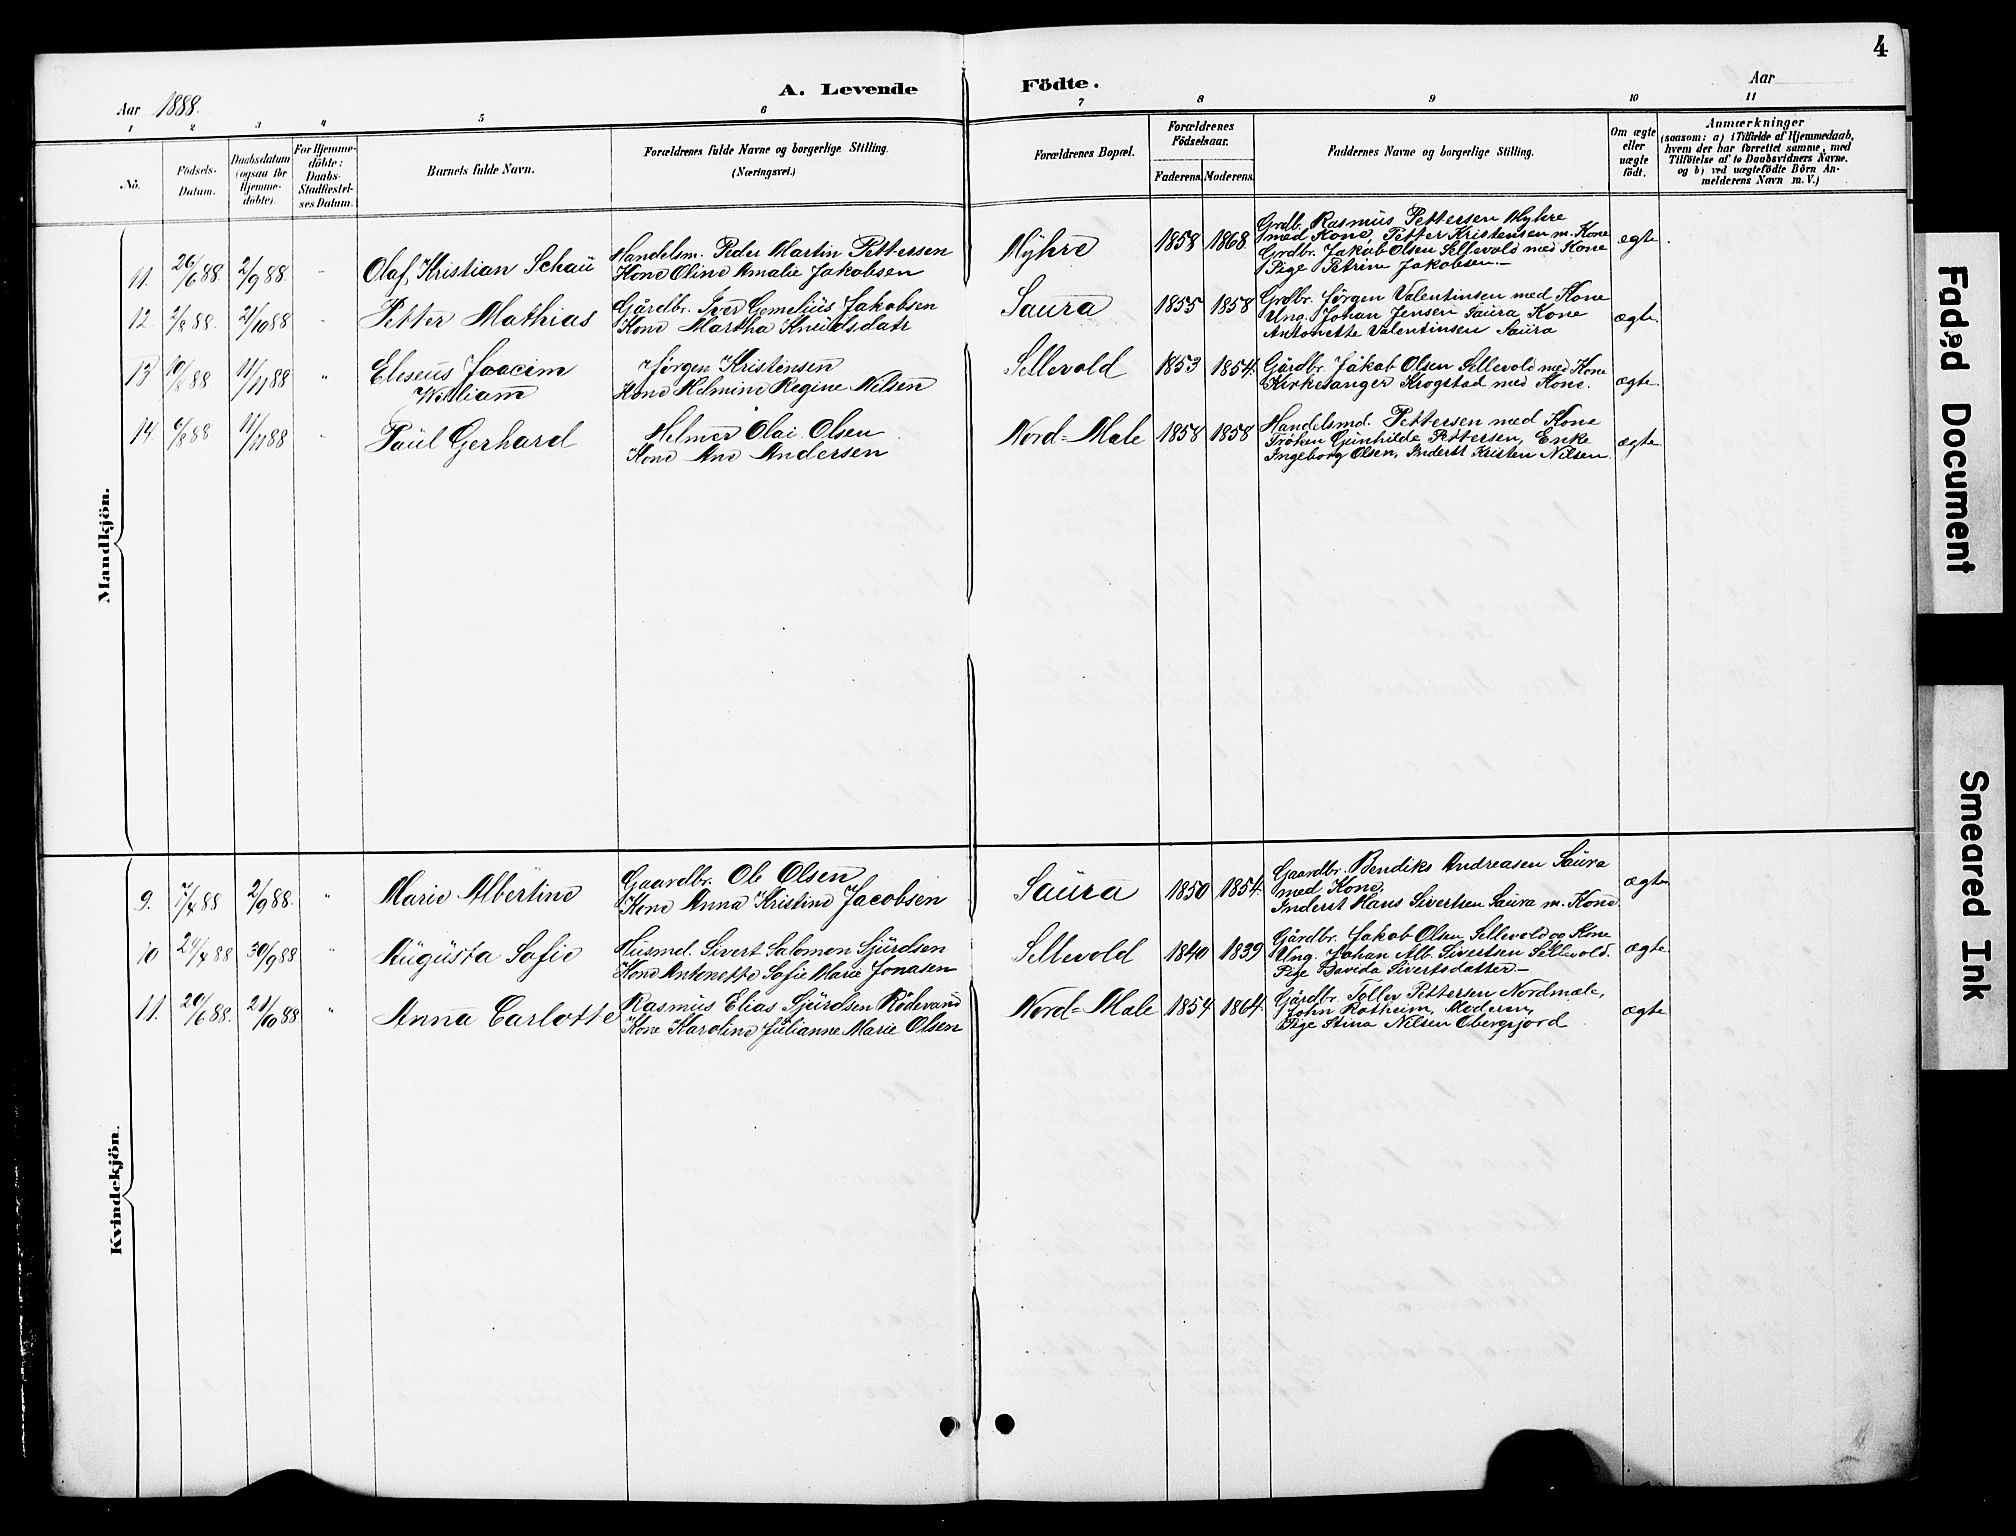 4
Aar 1888.
A. Levende Födte.
Aar
1 2 3 4 5 6 7 8 9 10 11
No.
Födsels-Datum.
Daabsdatum (ogsaa for Hjemmedöbte).
For Hjemmedöbte: Daabs-Stadfæstelses Datum.
Barnets fulde Navn.
Forældrenes fulde Navne og borgerlige Stilling. (Næringsvei.)
Forældrenes Bopæl.
Forældrenes Födselsaar.
Faderens. Moderens.
Faddernes Navne og borgerlige Stilling.
Om ægte eller uægte födt.
Anmærkninger
(saasom: a) i Tilfælde af Hjemmedaab, hvem der har forrettet samme, med Tilföielse af to Daabsvidners Navne. og b) ved uægtefödte Börn Anmelderens Navn m. V.)
Mandkjön.
11. 26/6 88. 2/9 88. Olaf Kristian Schau
Handelsm. Peder Martin Pettersen
Kone Oline Amalie Jakobsen
Myhre 1858 1868
Grdb. Rasmus Pettersen Myhre
med Kone Petter Kristensen m. Kone
Grdbr. Jakob Olsen Sellevold med Kone
Pige Petrine Jakobsen.
ægte.
12. 2/8 88. 21/10 88 Petter Mathias
Gårdbr. Iver Cornelius Jakobsen
Kone Martha Knudsdatr
Saura 1855 1858
Grdbr. Jørgen Valentinsen med Kone
Ung. Johan Jensen Saura, Kone
Antonette Valentinsen Saura
ægte.
13 10/8 88. 11/11 88 " Eliseus Joacim
William
Jørgen Kristensen
Kone Helmine Regine Nilsen
Sellevold 1853 1854.
Gårdbr. Jakob Olsen Sellevold med Kone
Kirkesanger Krogstad med Kone.
ægte.
14. 6/8 88. 11/11 88 Paul Gerhard
Helmer Olai Olsen
Kone Ane Andersen
Nord-Male 1858 1858
Handelsmd. Pettersen med Kone
Frøken Gunhilde Pettersen, Enke
Ingeborg Olsen, Inderst Kristen Nilsen.
ægte.
Kvindekjön.
9. 7/4 88 2/9 88. " Marie Albertine
Gaardbr. Ole Olsen
Kone Anna Kristine Jacobsen
Saura 1850 1854.
Gaardbr. Bendiks Andreasen Saura
med Kone.
Inderst Hans Sivertsen Saura m. Kone
ægte
10 24/4 88 30/9 88 " Augusta Sofie
Husmd. Sivert Salomon Sjurdsen
Kone Antonette Sofie Marie Jonasen
Sellevold 1840 1839
Gårdbr. Jakob Olsen Sellevold og Kone
Ung. Johan Alb. Sivertsen Sellevold.
Pige Davida Sivertsdatter
ægte
11. 20/6 88. 21/10 88 " Anna Carlotte
Rasmus Elias Sjurdsen Rödevand
Kone Karoline Julianne Marie Olsen
Nord-Male 1854 1864.
Gårdbr. Toller Pettersen Nordmæle,
John Rotheim, Moderen,
Pige Stina Nilsen Obergsjord
ægte
Faded Document
Smeared Ink